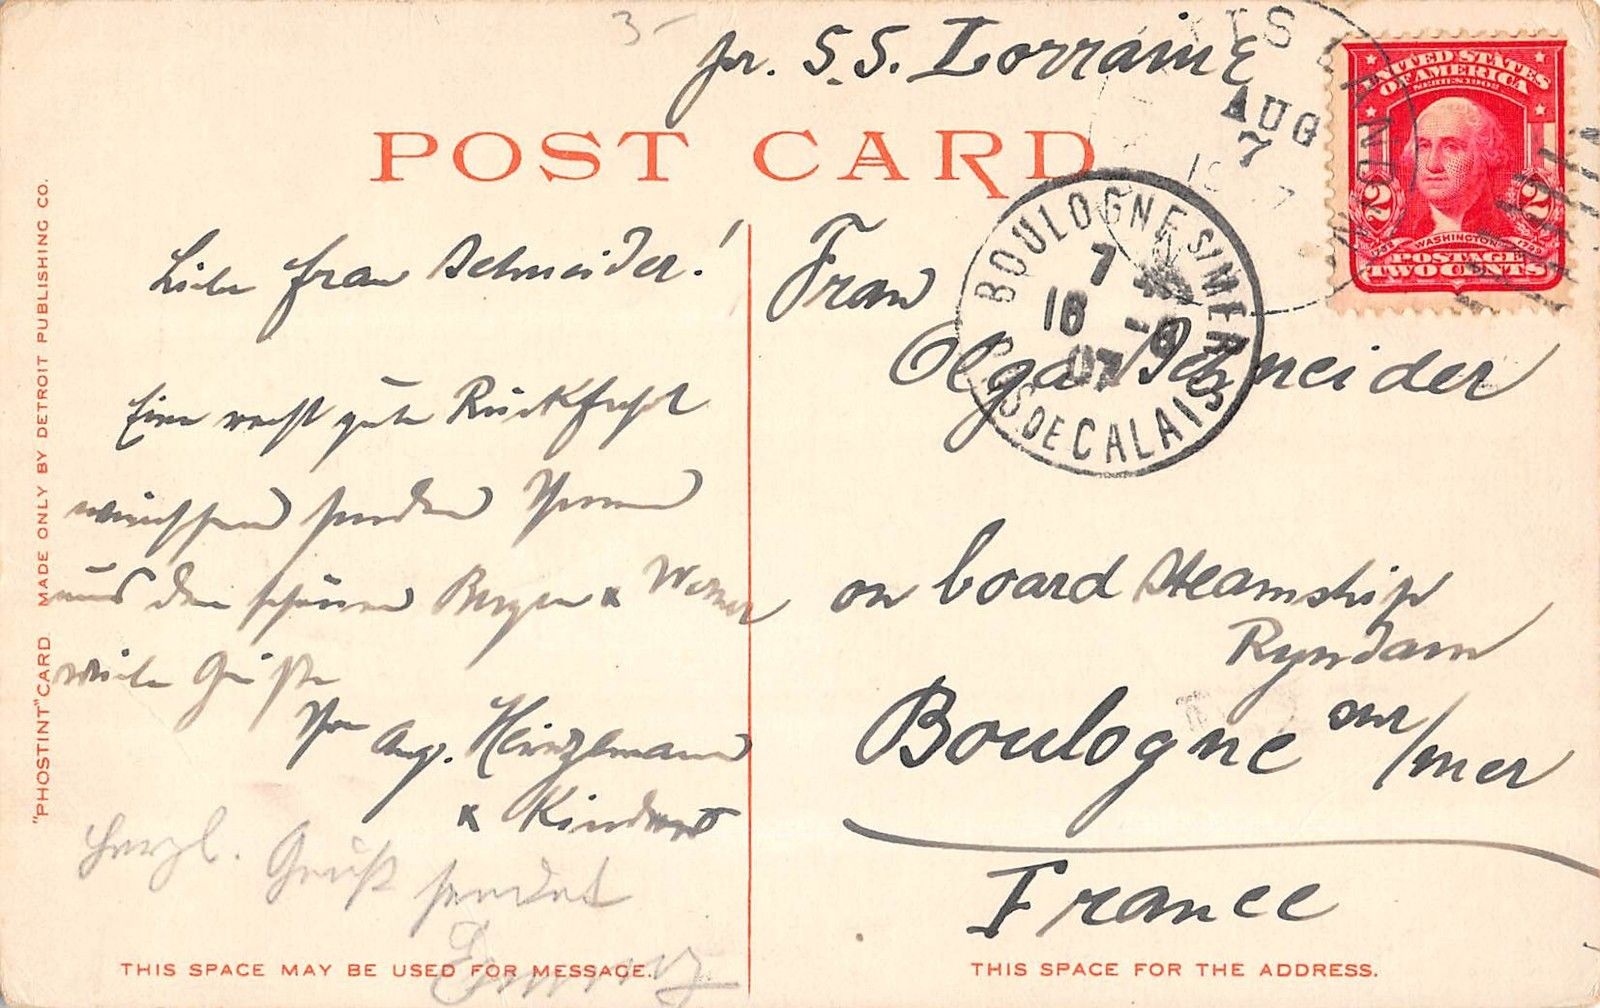 pr. S.S. Lorraine
POST CARD
UNITED STATES
OF AMERICA
SERIES 1902
2 2
WASHINGTON
POSTAGE
TWO CENTS
AUG
7
BOULOGNE S/MER
7
18 -8
07
PAS DE CALAIS
Liebe Frau Schneider!
Eine recht gute Rückfahrt
wünschen senden Ihnen
aus den schönen Bergen &
viele Grüße
Ihr Aug. Heinzelmann
& Kinder
Herzl. Gruß sendet
Frau
Olga Schneider
on board Steamship
Ryndam
Boulogne sur/mer
France
"PHOSTINT" CARD MADE ONLY BY DETROIT PUBLISHING CO.
THIS SPACE MAY BE USED FOR MESSAGE.
THIS SPACE FOR THE ADDRESS.